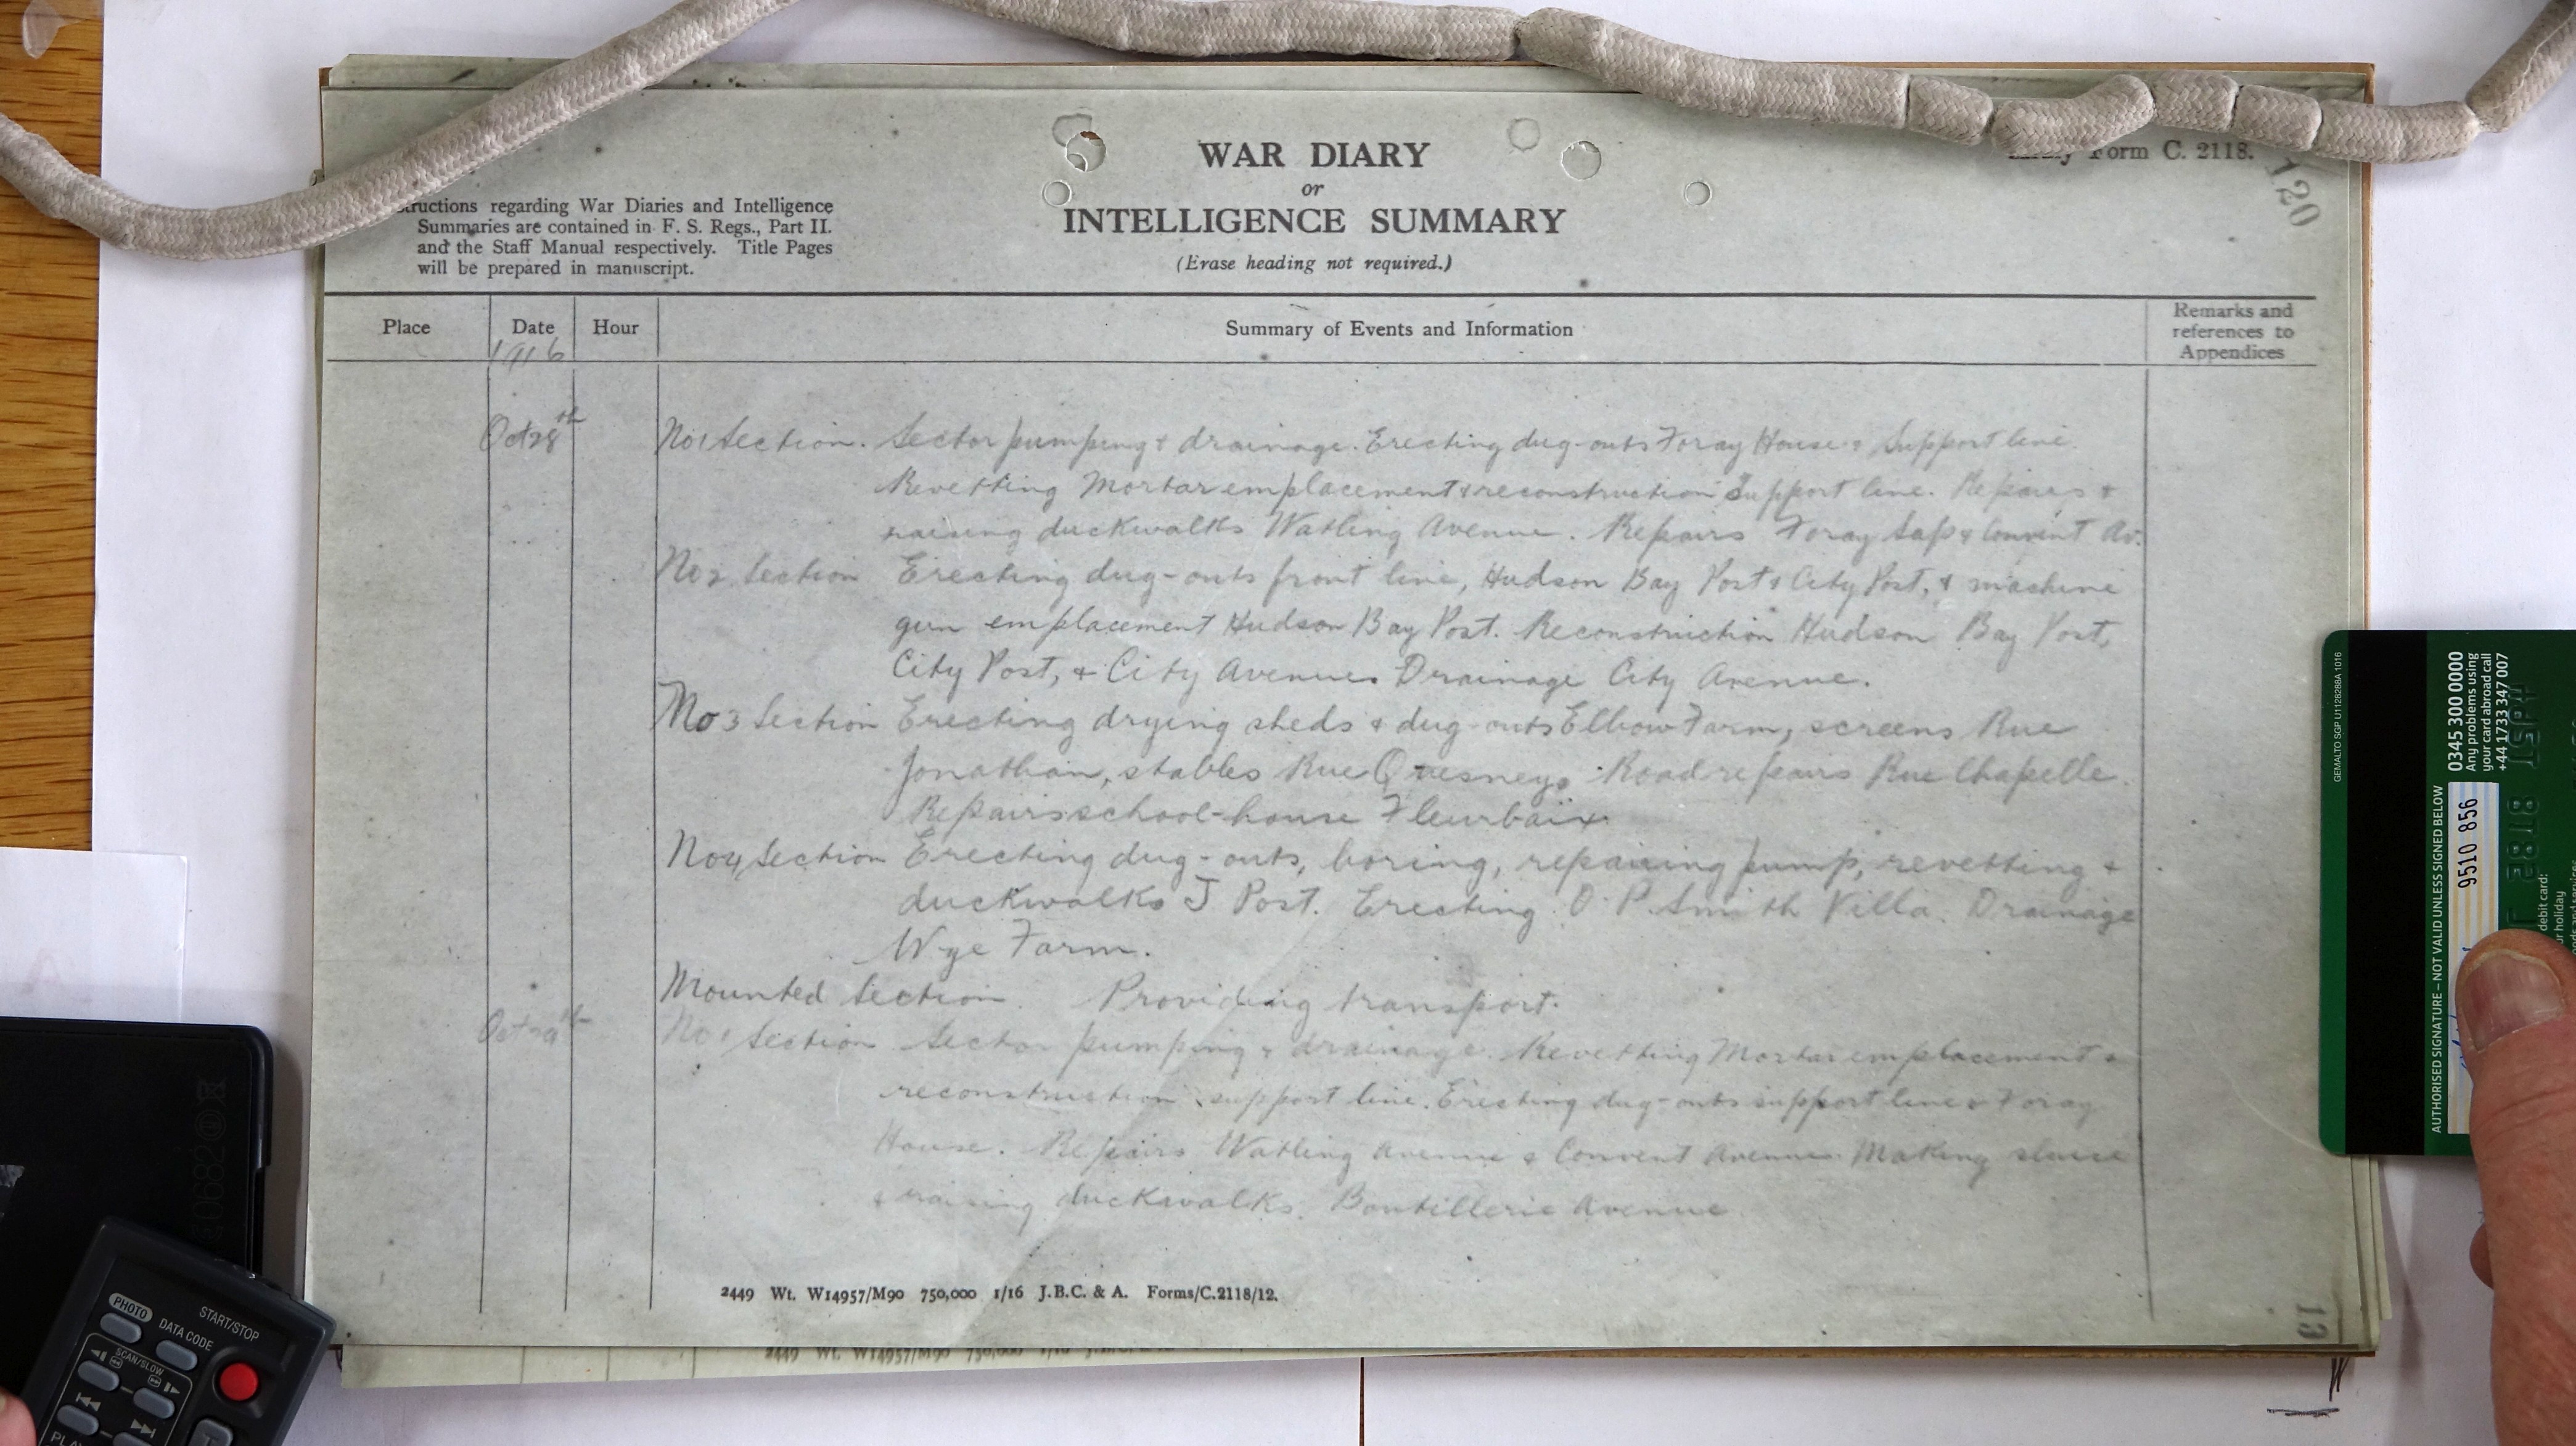 WAR DIARY
or
INTELLIGENCE SUMMARY
(Erase heading not required.)
Form C. 2118.
120
regarding War Diaries and Intelligence
Summaries are contained in F. S. Regs., Part II.
and the Staff Manual respectively. Title Pages
will be prepared in manuscript.
Place
Date
Hour
Summary of Events and Information
Remarks and
references to
Appendices
1916
Oct 28th
No 1 Section. Sector pumping & drainage. Erecting dug-outs Foray House & Support line.
Revetting Mortar emplacement & reconstruction Support line. Repairs &
raising duckwalks Watling Avenue. Repairs Foray Sap & Convent Av.
No 2 Section Erecting dug-outs front line, Hudson Bay Post & City Post, & machine
gun emplacement Hudson Bay Post. Reconstruction Hudson Bay Post,
City Post, & City Avenue. Drainage City Avenue.
No 3 Section Erecting drying sheds & dug-outs Elbow Farm, screens Rue
Jonathan, stables Rue Quesney. Road repairs Rue Chapelle.
Repairs school-house Fleurbaix
No 4 Section Erecting dug-outs, boring, repairing pump, revetting &
duckwalks J Post. Erecting O.P. Smith Villa. Drainage
Wye Farm.
Mounted Section. Providing transport.
Oct 29th
No 1 Section Sector pumping & drainage. Revetting Mortar emplacement &
reconstruction support line. Erecting dug-outs support line & Foray
House. Repairs Watling Avenue & Convent Avenue. Making sluice
& raising duckwalks. Boutillerie Avenue
2449 Wt. W14957/M90 750,000 1/16 J.B.C. & A. Forms/C.2118/12.
13
2449 Wt. W14957/M90 750,000 1/16
GEMALTO SGP U1128288A 1016
AUTHORISED SIGNATURE – NOT VALID UNLESS SIGNED BELOW
9510 856
0345 300 0000
Any problems using
your card abroad call
+44 1733 347 007
debit card:
PHOTO
START/STOP
DATA CODE
SCAN/SLOW